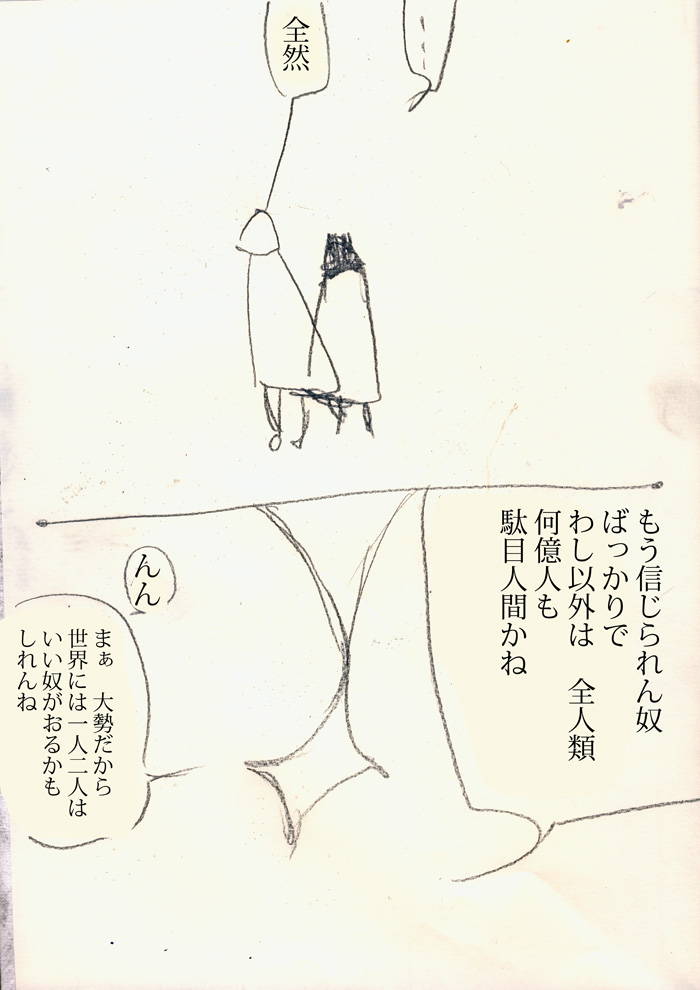 全然
もう信じられん奴
ばっかりで
わし以外は　全人類
何億人も
駄目人間かね
んん
まぁ　大勢だから
世界には一人二人は
いい奴がおるかも
しれんね